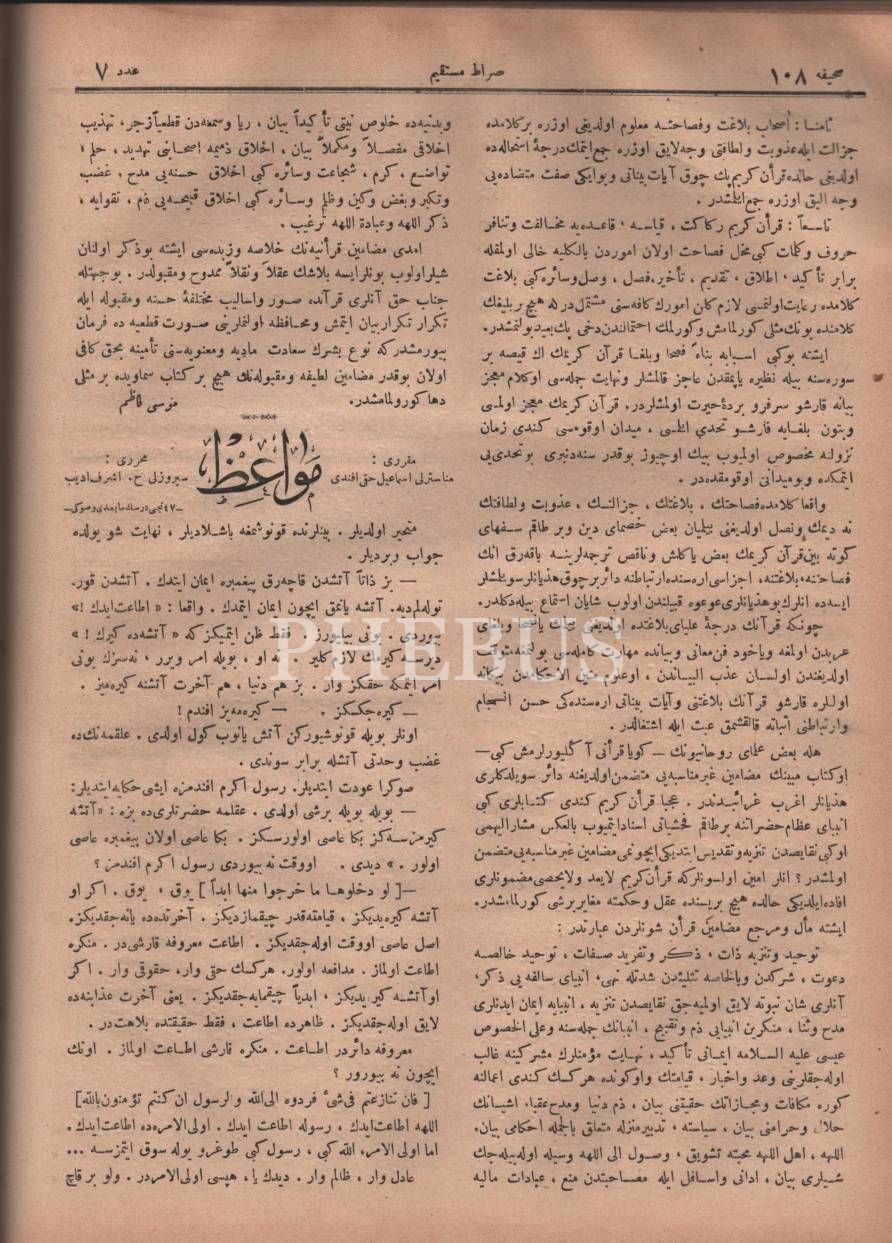 صحیفه ۱۰۸
صراط مستقیم
عدد ۷
ثامناً : اصحاب بلاغت وفصاحته معلوم اولدیغی اوزره برکلامده
جزالت ایله عذوبت ولطافتی وجه لایق اوزره جمع ایتمك درجۀ استحاله ده
اولدیغی حالده قرآن کریم پك چوق آیات بیناتی وبوایکی صفت متضاده یی
وجه الیق اوزره جمع ایلمشدر .
تاسعاً : قرآن کریم رکاکت ، قیاسه ، قاعده یه مخالفت وتنافر
حروف وکلمات کبی مخل فصاحت اولان اموردن بالکلیه خالی اولمقله
برابر تأکید ، اطلاق ، تقدیم ، تأخیر، فصل ، وصل وسائره کبی بلاغت
کلامده رعایت اولنمسی لازم کلن امورك کافه سنی مشتملدر که هیچ بر بلیغك
کلامنده بونك مثلی کورلمامش وکورلمك احتمالندن دخی پك بعید بولنمشدر.
ایشته بوکبی اسبابه بناءً فصحا وبلغا قرآن کریمك اك قیصه بر
سوره سنه بیله نظیره یاپمقدن عاجز قالمشلر ونهایت جمله سی اوکلام معجز
بیانه قارشو سرفرو بردۀ حیرت اولمشلردر. قرآن کریمك معجز اولمسی
وبتون بلغایه قارشو تحدی ایلمسی ، میدان اوقومسی کندی زمان
نزولنه مخصوص اولمیوب بیك اوچیوز بوقدر سنه دنبری بو تحدی یی
ایتمکده وبو میدانی اوقومقده در .
واقعا کلامده فصاحتك ، بلاغتك ، جزالتك ، عذوبت ولطافتك
نه دیمك ونصل اولدیغنی بیلمیان بعض خصمای دین وبر طاقم سفهای
کوته بین قرآن کریمك بعض یاکلش وناقص ترجمه لرینه باقه رق انك
فصاحتنه، بلاغتنه، اجزاسی اره سنده ارتباطنه دائر برچوق هذیانلر سویلمشلر
ایسه ده انلرك بو هذیانلری عوعوه قبیلندن اولوب شایان استماع بیله دکلدر.
چونکه قرآنك درجۀ علیای بلاغتده اولدیغنی بیلمك یا فصحا وبلغای
عربدن اولمغه ویاخود فن معانی وبیانده مهارت کامله سی بولنمغه متوقف
اولدیغندن اولسان عذب البیاندن ، اوعلوم متین الاحکامدن بیکانه
اولنلره قارشو قرآنك بلاغتنی وآیات بیناتی اره سنده کی حسن انسجام
وارتباطنی اثباته قالقشمق عبث ایله اشتغالدر.
هله بعض علمای روحانیونك — کویا قرآنی آکلیورلرمش کبی —
اوکتاب مبینك مضامین غیرمناسبه یی متضمن اولدیغنه دائر سویلدکلری
هذیانلر اغرب غرائبدندر . عجبا قرآن کریم کندی کتابلری کبی
انبیای عظام حضراتنه برطاقم فحشیاتی اسناد ایتمیوب بالعکس مشارالیهمی
اوکبی نقایصدن تنزیه وتقدیس ایتدیکی ایچونمی مضامین غیرمناسبه یی متضمن
اولمشدر ؟ انلر امین اولسونلرکه قرآن کریم لایعد ولایحصی مضمونلری
افاده ایلدیکی حالده هیچ بریسنده عقل وحکمته مغایر برشی کورلمامشدر.
ایشته مآل ومرجع مضامین قرآن شونلردن عبارتدر :
توحید وتنزیه ذات ، ذکر وتفرید صفات ، توحید خالصه
دعوت ، شرکدن وبالخاصه تثلیثدن شدتله نهی، انبیای سالفه یی ذکر،
آنلری شان نبوته لایق اولمیه جق نقایصدن تنزیه ، انبیایه ایمان ایدنلری
مدح وثنا ، منکرین انبیایی ذم وتقبیح ، انبیانك جمله سنه وعلی الخصوص
عیسی علیه السلامه ایمانی تأکید ، نهایت مؤمنلرك مشرکینه غالب
اوله جقلرینی وعد واخبار ، قیامتك واوکونده هرکسك کندی اعمالنه
کوره مکافات ومجازاتك حقیتنی بیان ، ذم دنیا ومدح عقبا، اشیانك
حلال وحرامنی بیان ، سیاسته ، تدبیر منزله متعلق بالجمله احکامی بیان،
اللهه ، اهل اللهه محبته تشویق ، وصول الی اللهه وسیله اوله بیله جك
شیلری بیان ، ادانی واسافل ایله مصاحبتدن منع ، عبادات مالیه
وبدنیه ده خلوص نیتی تأکیداً بیان ، ریا وسمعه دن قطعیاً زجر، تهذیب
اخلاقی مفصلاً ومکملاً بیان ، اخلاق ذمیمه اصحابنی تهدید ، حلم ،
تواضع ، کرم ، شجاعت وسائره کبی اخلاق حسنه یی مدح، غضب،
وتکبر وبغض وکین وظلم وسائره کبی اخلاق قبیحه یی ذم ، تقوایه ،
ذکر اللهه وعبادة اللهه ترغیب .
امدی مضامین قرآنیه نك خلاصه وزبده سی ایشته بوذکر اولنان
شیلر اولوب بونلر ایسه بلاشك عقلاً ونقلاً ممدوح ومقبولدر. بوجهتله
جناب حق آنلری قرآنده صور واسالیب مختلفۀ حسنه ومقبوله ایله
تکرار تکرار بیان ایتمش ومحافظه اولنملرینی صورت قطعیه ده فرمان
بیورمشدرکه نوع بشرك سعادت مادیه ومعنویه سنی تأمینه بحق کافی
اولان بوقدر مضامین لطیفه ومقبوله نك هیچ بر کتاب سماویده بر مثلی
دها کورولمامشدر.
موسی کاظم
مواعظ
مقرری :
مناسترلی اسماعیل حقی افندی
محرری :
سیروزلی ح. اشرف ادیب
— ٤٧ نجی درسك مابعدی وصوکی —
متحیر اولدیلر . بینلرنده قونوشمغه باشلادیلر ، نهایت شو یولده
جواب ویردیلر .
— بز ذاتاً آتشدن قاچه رق پیغمبره ایمان ایتدك . آتشدن قور-
توله لم دیه. آتشه یانمق ایچون ایمان ایتمدك . واقعا : « اطاعت ایدك !»
بیوردی . بونی بیلیورز . فقط ظن ایتمیکز که « آتشه ده کیرك ! »
دیرسه کیرمك لازم کلیر . نه او ، بویله امر ویرر ، نه سزك بونی
امر ایتمکه حقکز وار . بز هم دنیا ، هم آخرت آتشنه کیره میز .
— کیره جکسکز . — کیره مه یز افندم !
اونلر بویله قونوشیورکن آتش یانوب کول اولدی . علقمه نك ده
غضب وحدتی آتشله برابر سوندی .
صوکرا عودت ایتدیلر. رسول اکرم افندمزه ایشی حکایه ایتدیلر:
— بویله بویله برشی اولدی . علقمه حضرتلری ده بزه : «آتشه
کیرمزسه کز بکا عاصی اولورسکز. بکا عاصی اولان پیغمبره عاصی
اولور . » دیدی . اووقت نه بیوردی رسول اکرم افندمز ؟
—[ لو دخلوها ما خرجوا منها ابداً ] یوق ، یوق . اکر او
آتشه کیره یدیکز ، قیامته قدر چیقمازدیکز . آخرتده ده یانه جقدیکز.
اصل عاصی اووقت اوله جقدیکز . اطاعت معروفه قارشی در . منکره
اطاعت اولماز . مدافعه اولور. هرکسك حقی وار، حقوقی وار . اکر
او آتشه کیره یدیکز ، ابدیاً چیقمایه جقدیکز. یعنی آخرت عذابنه ده
لایق اوله جقدیکز . ظاهرده اطاعت ، فقط حقیقتده بلاهتدر .
معروفه دائردر اطاعت . منکره قارشی اطاعت اولماز . اونك
ایچون نه بیورور ؟
[ فان تنازعتم فی شئ فردوه الی الله و الرسول ان کنتم تؤمنون بالله]
اللهه اطاعت ایدك ، رسوله اطاعت ایدك. اولی الامره ده اطاعت ایدك.
اما اولی الامر، الله کبی ، رسول کبی طوغرو یوله سوق ایتمزسه ...
عادل وار ، ظالم وار . دیدك یا، هپسی اولی الامردر. ولو بر قاچ
PHEBUS